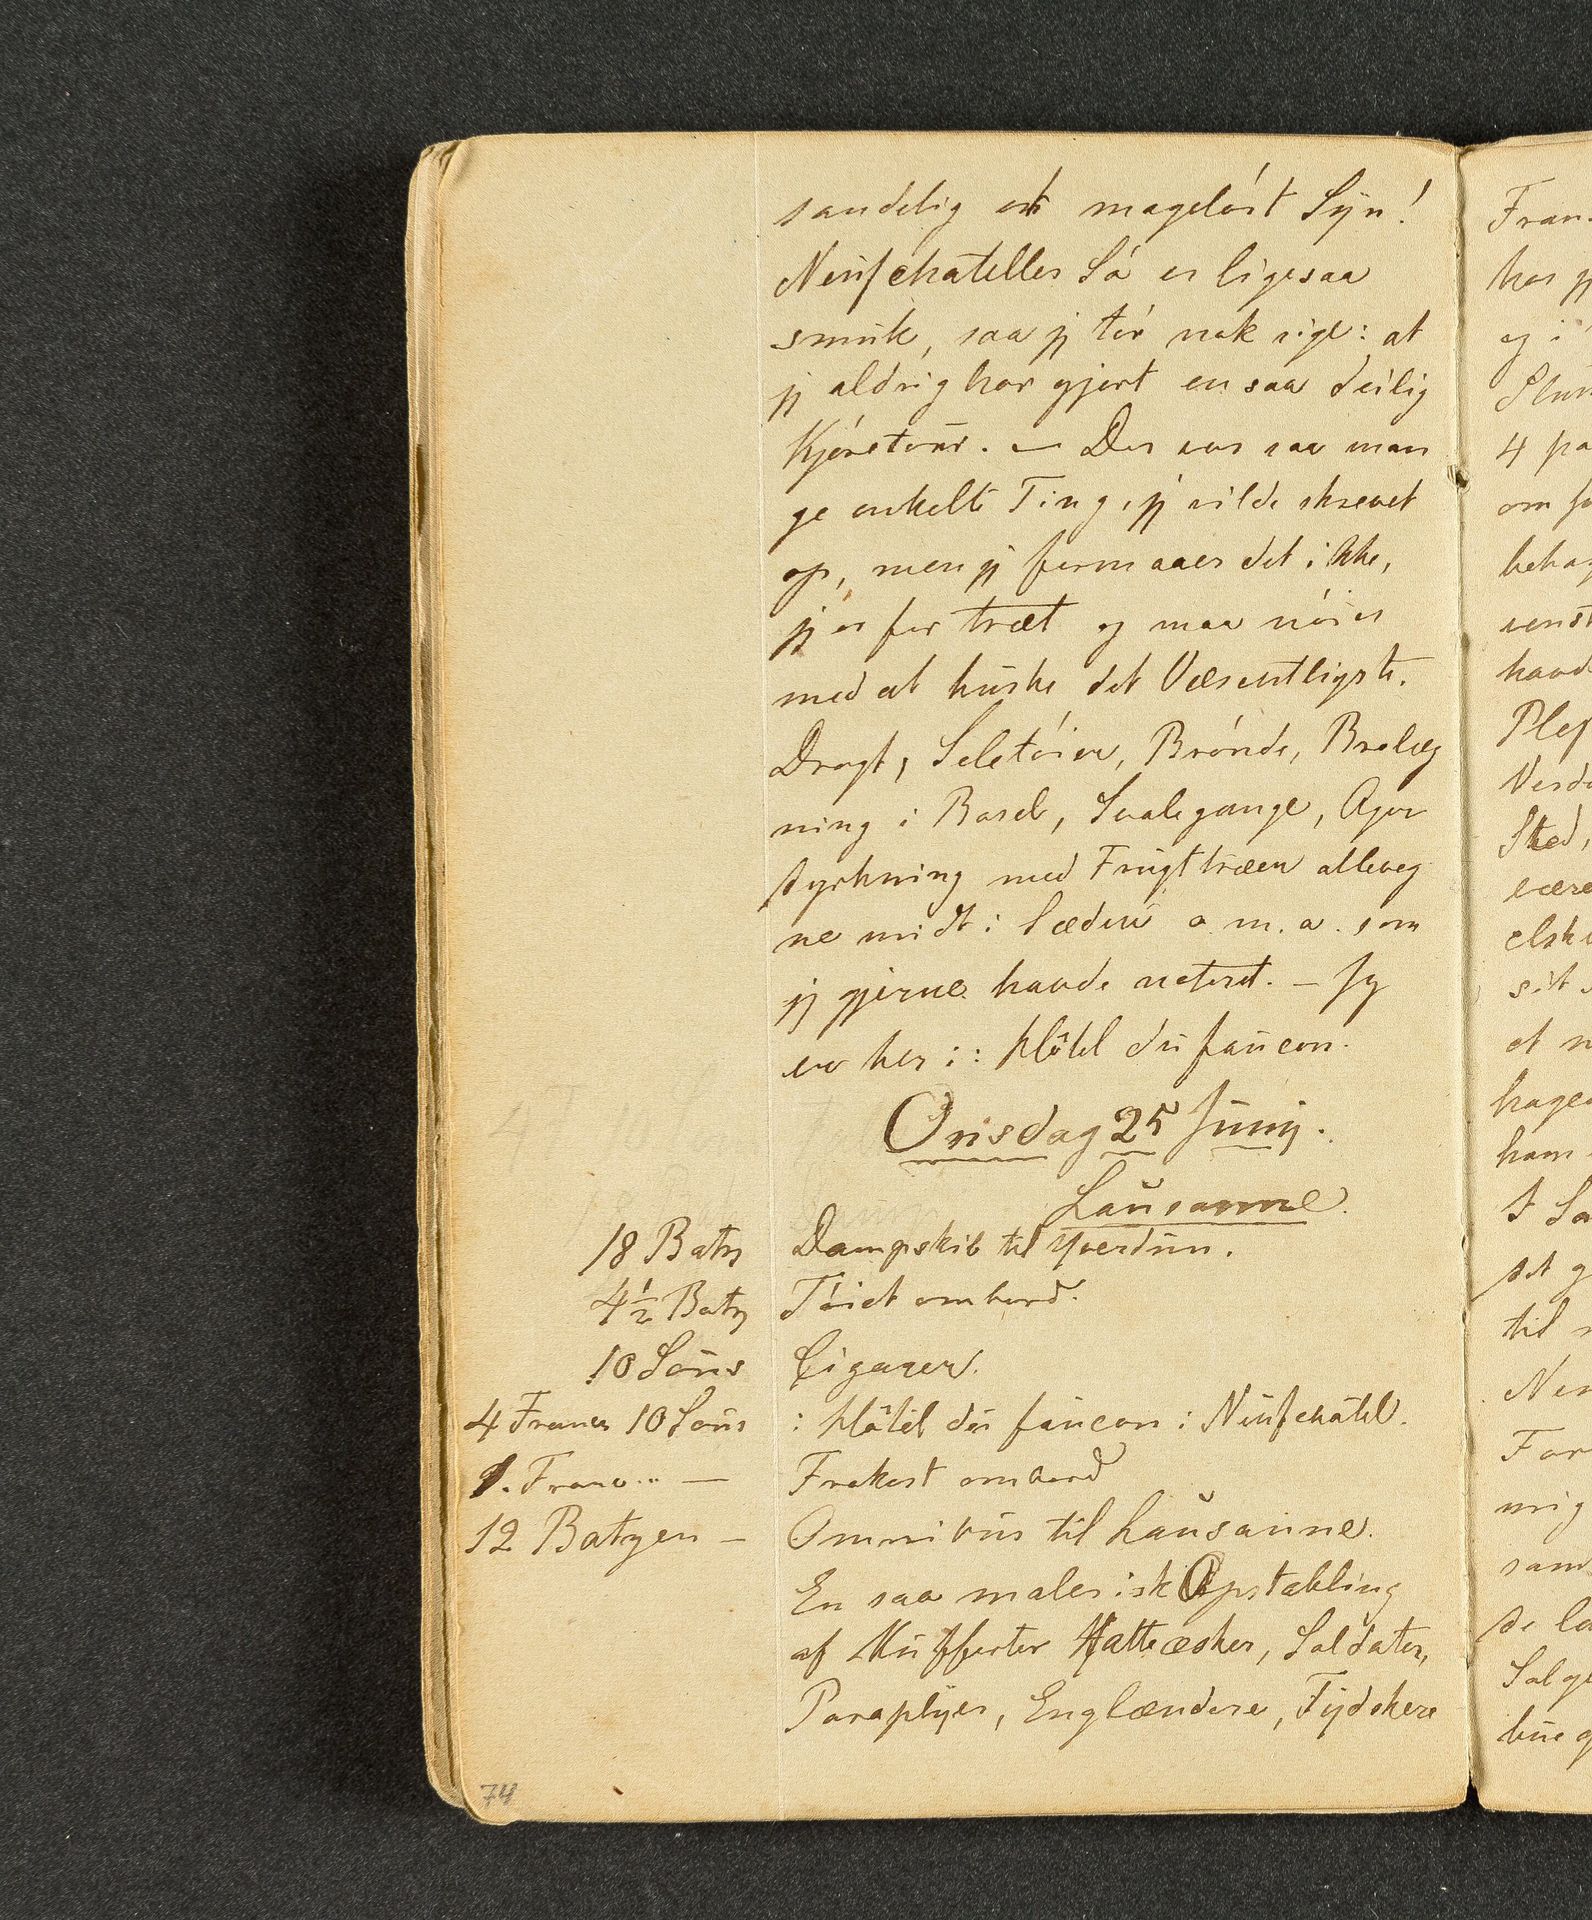 sandelig et mageløst Syn!
Neufchateller Sø er ligesaa
smuk, saa jeg tør nok sige: at
jeg aldrig har gjort en saa deilig
Kjøretour. — Der var saa man
ge enkelte Ting, jeg vilde skrevet
op, men jeg formaaer det ikke,
jeg er for træt og maa nøies
med at huske det Væsentligste.
Dragt, Seletøier, Brønde, Brolæg
ning i Basel, Svalegange, Ager
dyrkning med Frugttræer alleveg
ne midt i Sæden o. m. a. som
jeg gjerne havde noteret. — Jeg
er her i: Hôtel du faucon.
Onsdag 25 Junij.
Lausanne.
18 Batz Dampskib til Yverdun.
4½ Batz Tøiet ombord.
10 Sous Cigarer.
4 Francs 10 Sous : Hôtel du faucon i Neufchâtel.
1. Franc .. — Frokost ombord
12 Batzen — Omnibus til Lausanne.
En saa malerisk Opstabling
af Kufferter Hatteæsker, Soldater,
Paraplyer, Englændere, Tydskere
74
Fran
har j
og i
4 pa
om fo
behag
venst
havd
Plef
Verde
Sted,
være
elsk
sit
et n
hage
ham
I Sa
det g
til
Ne
For
mig
sam
de la
Salg